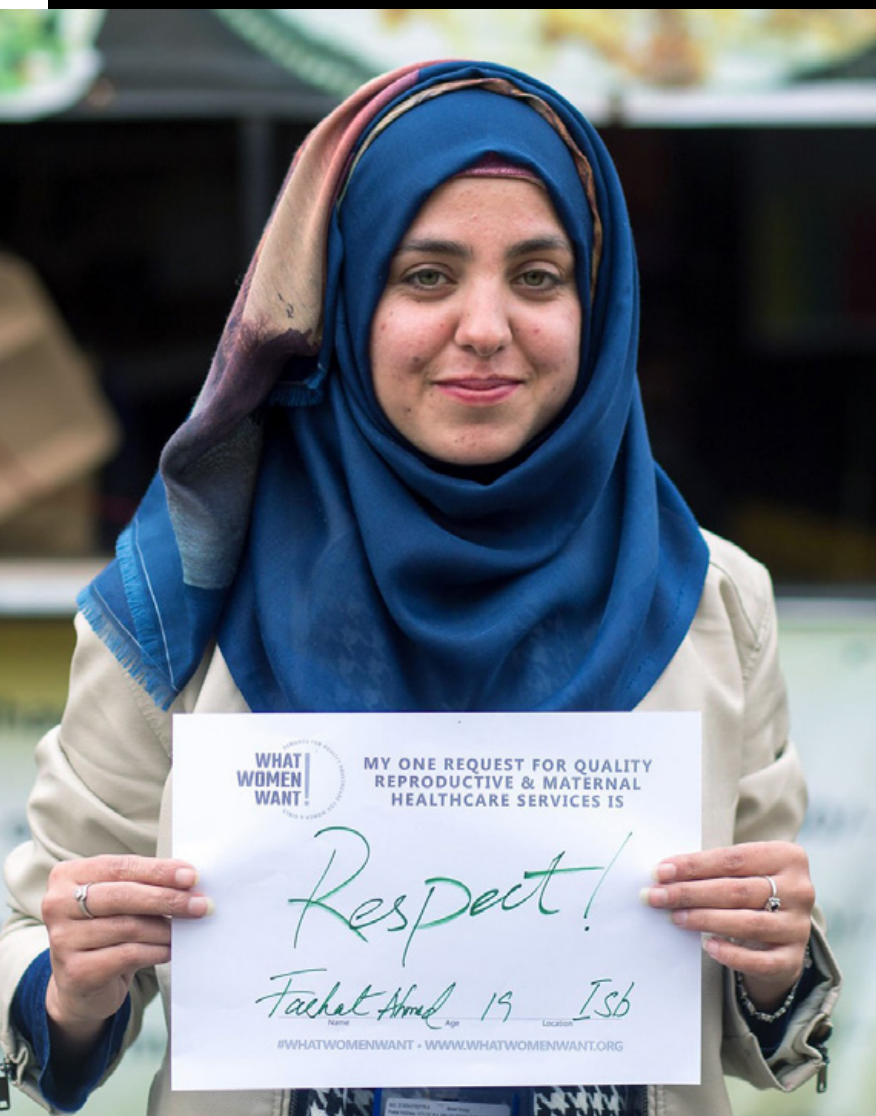 WHAT
WOMEN
WANT!
MY ONE REQUEST FOR QUALITY
REPRODUCTIVE & MATERNAL
HEALTHCARE SERVICES IS
Respect!
Ahmed 19 Isb
Name Age Location
#WHATWOMENWANT • WWW.WHATWOMENWANT.ORG